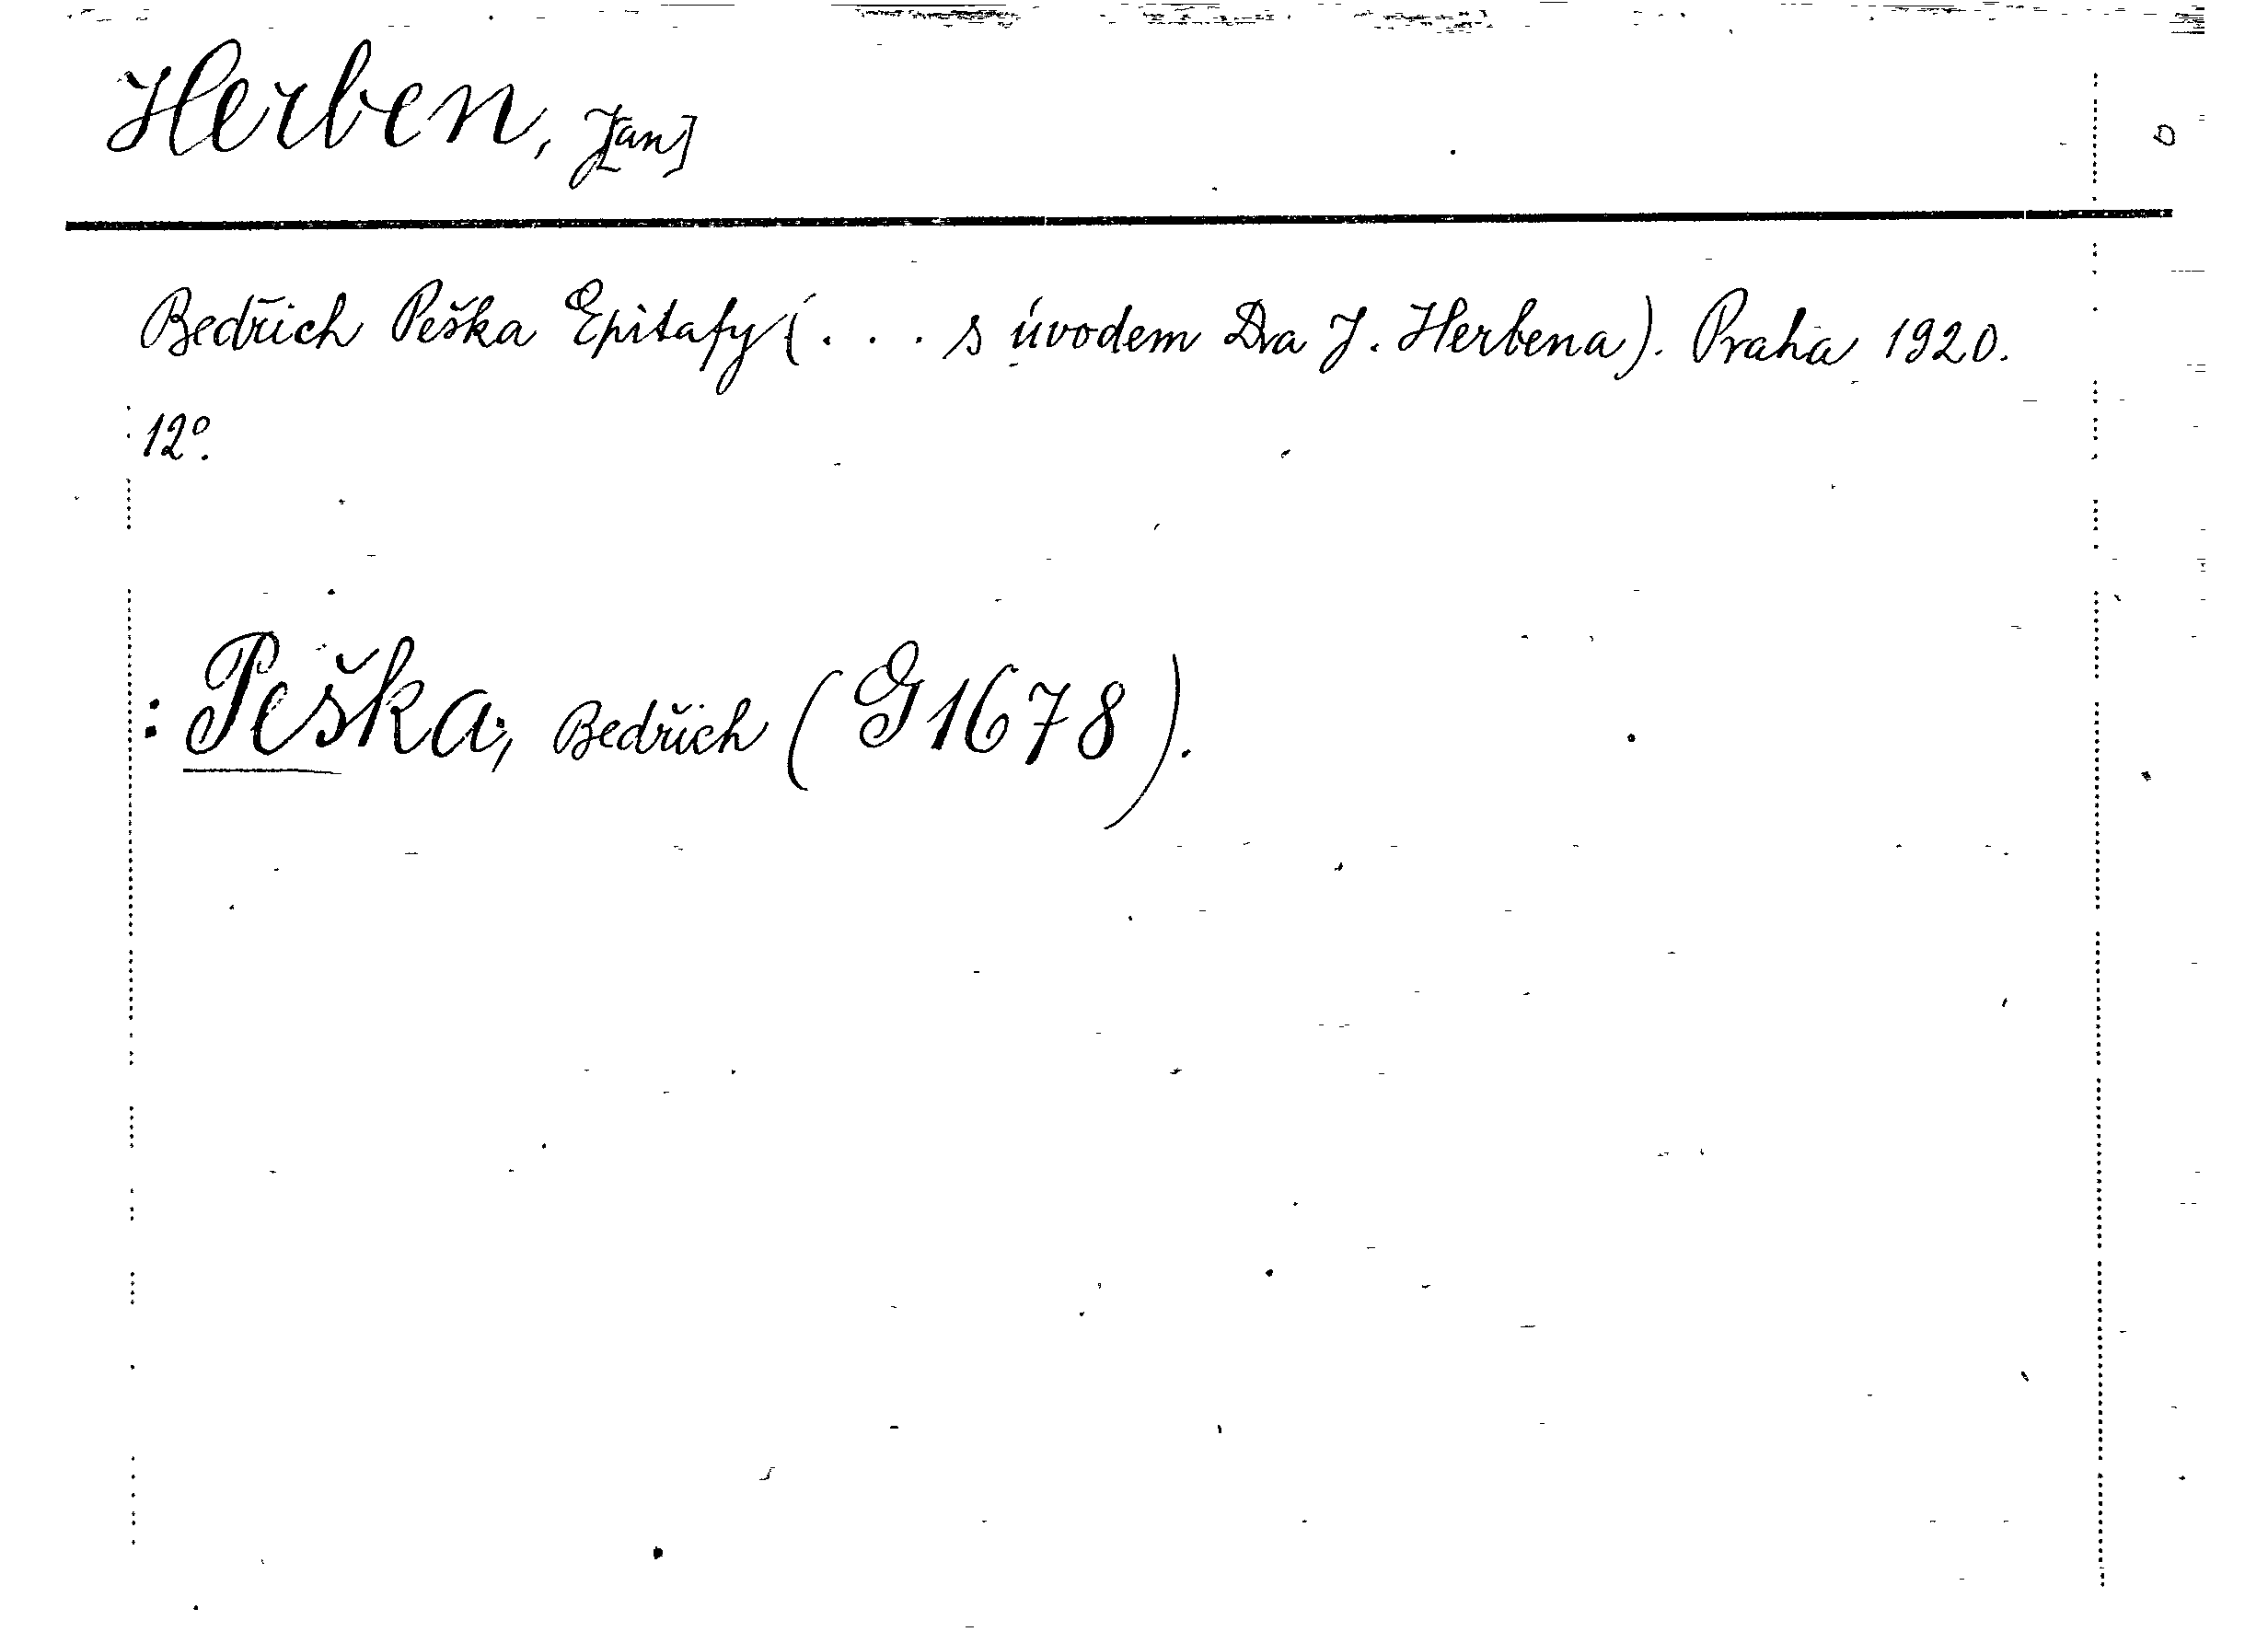 Herben, J[an]
Bedřich Peška Epitafy (. . . s úvodem Dra J. Herbena). Praha 1920.
12°.
: Peška, Bedřich (G 1678).